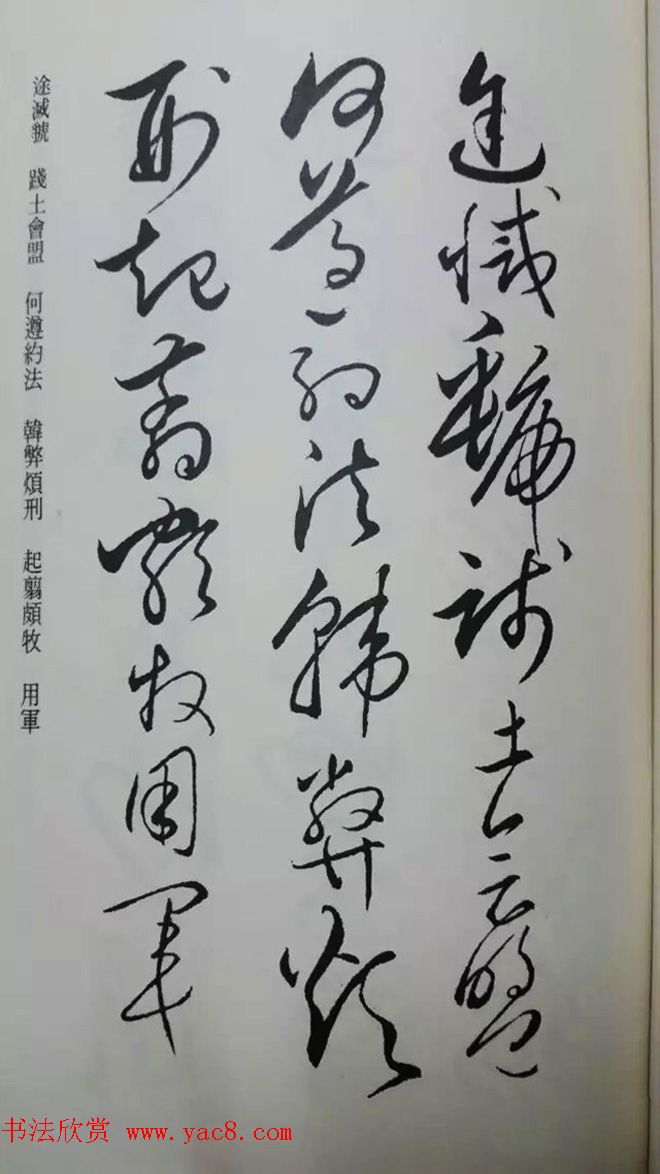 途滅虢踐土會盟
何遵約法韓弊煩
刑起翦頗牧用軍
途滅虢 踐土會盟 何遵約法 韓弊煩刑 起翦頗牧 用軍
书法欣赏 www.yac8.com